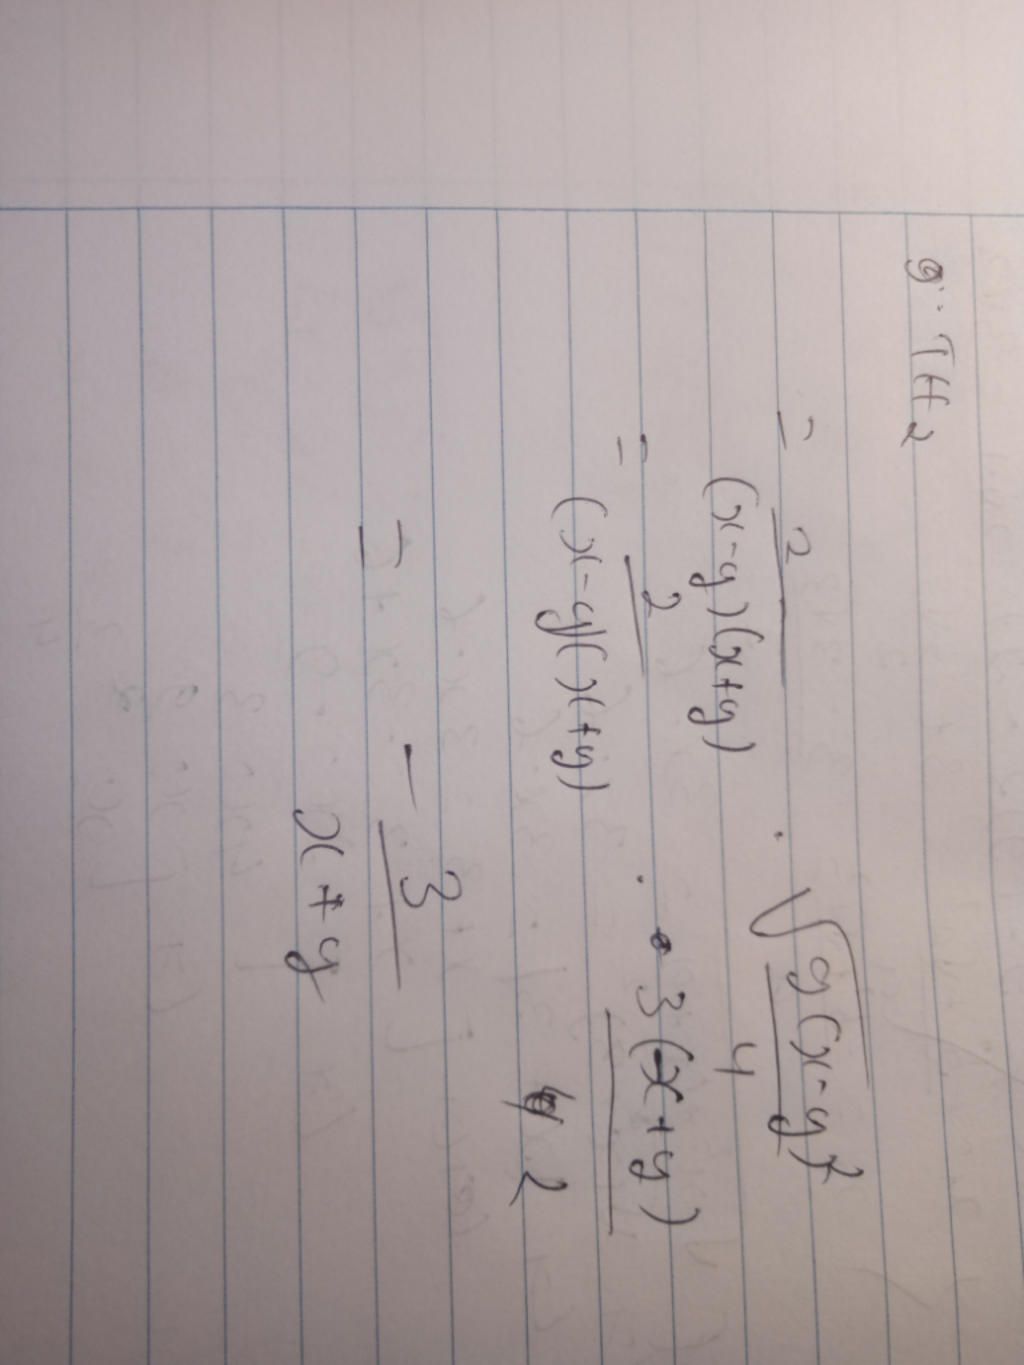 g. TH2
= 2/((x-y)(x+y)) . √(9(x-y)²/4)
= 2/((x-y)(x+y)) . 3(-x+y)/2
= - 3/(x+y)